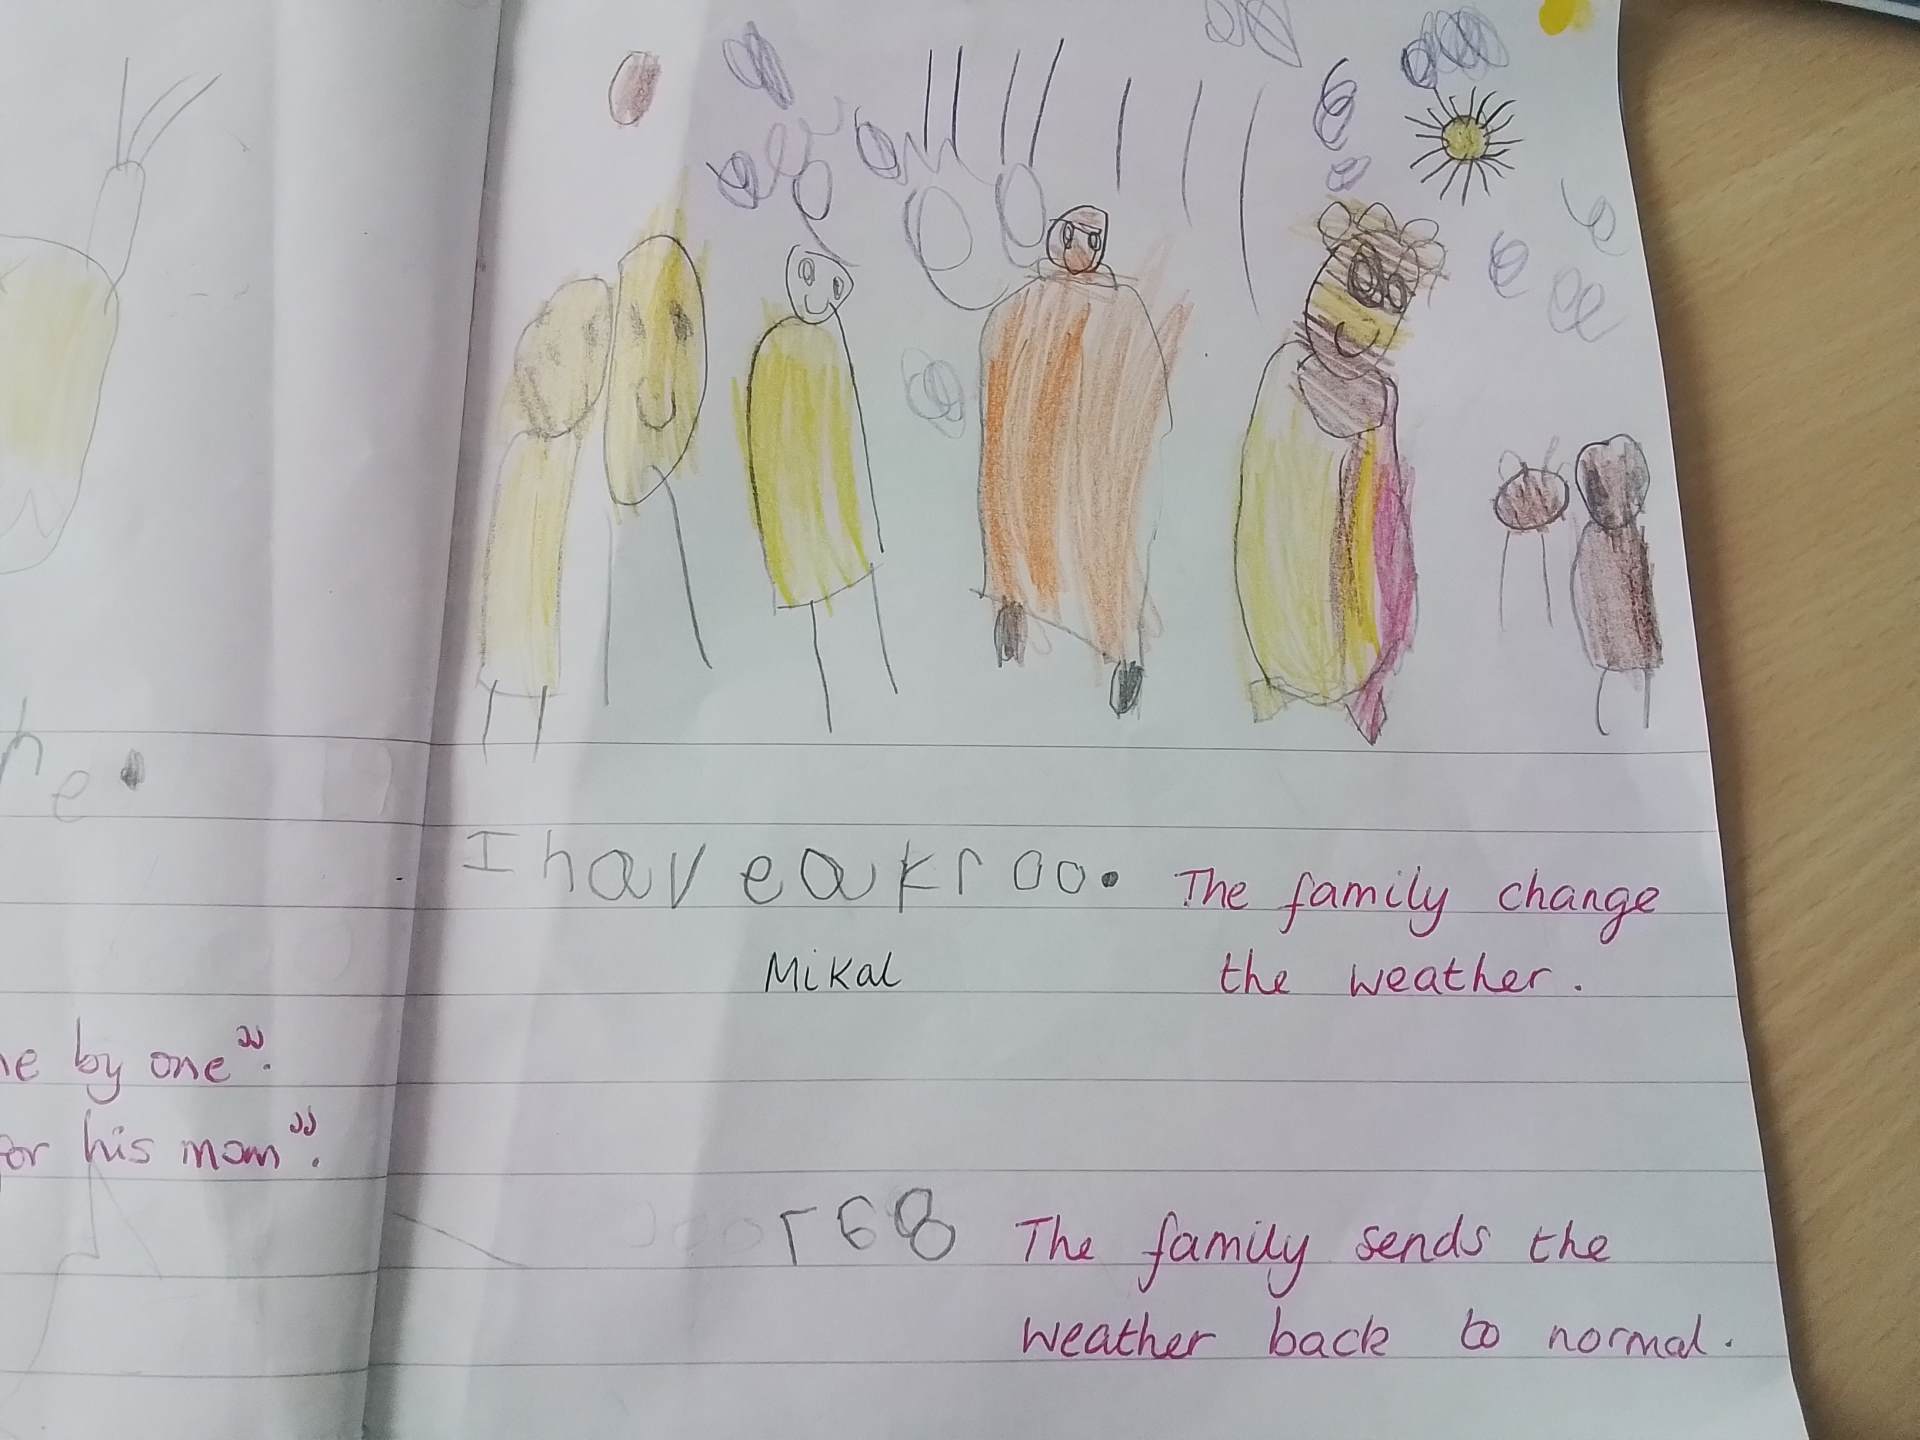 he.
I have a kroo. The family change
Mikal the weather.
e by one".
for his mom".
r68 The family sends the
weather back to normal.